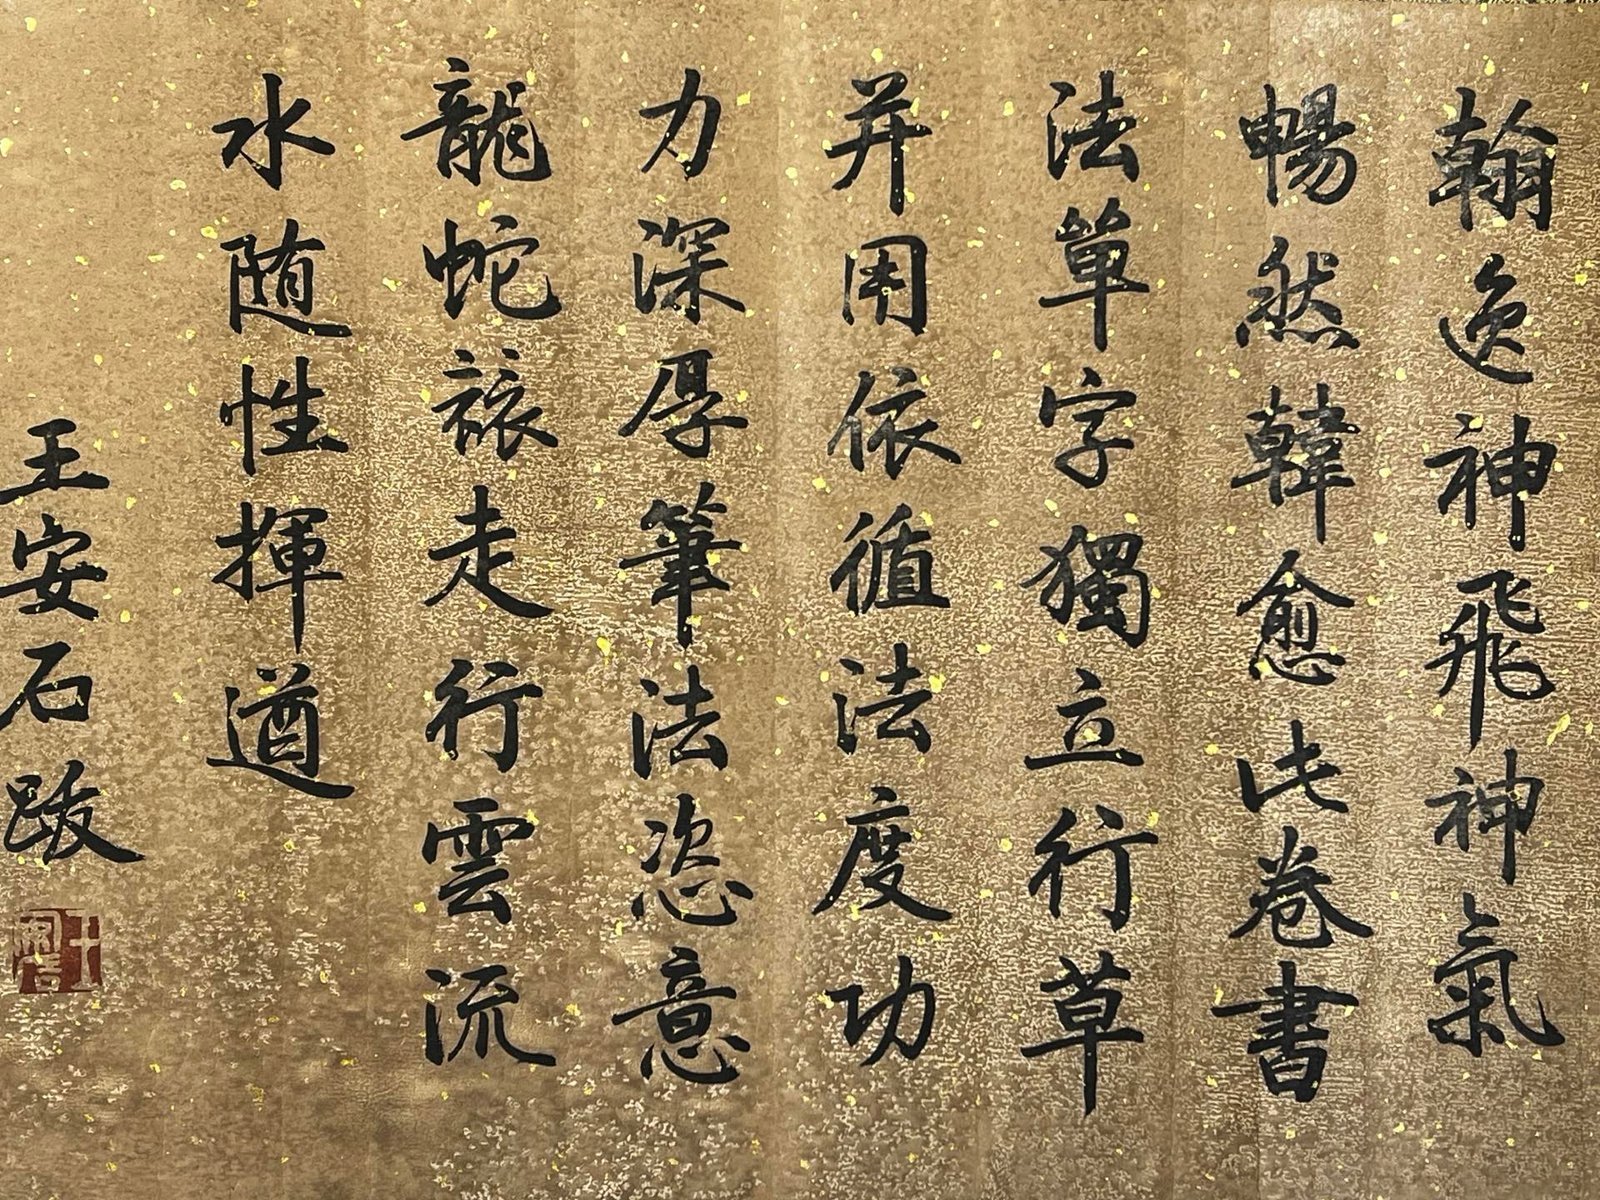 翰逸神飛神氣
暢然韓愈此卷書
法單字獨立行草
并用依循法度功
力深厚筆法恣意
龍蛇裱走行雲流
水随性揮遒
王安石跋